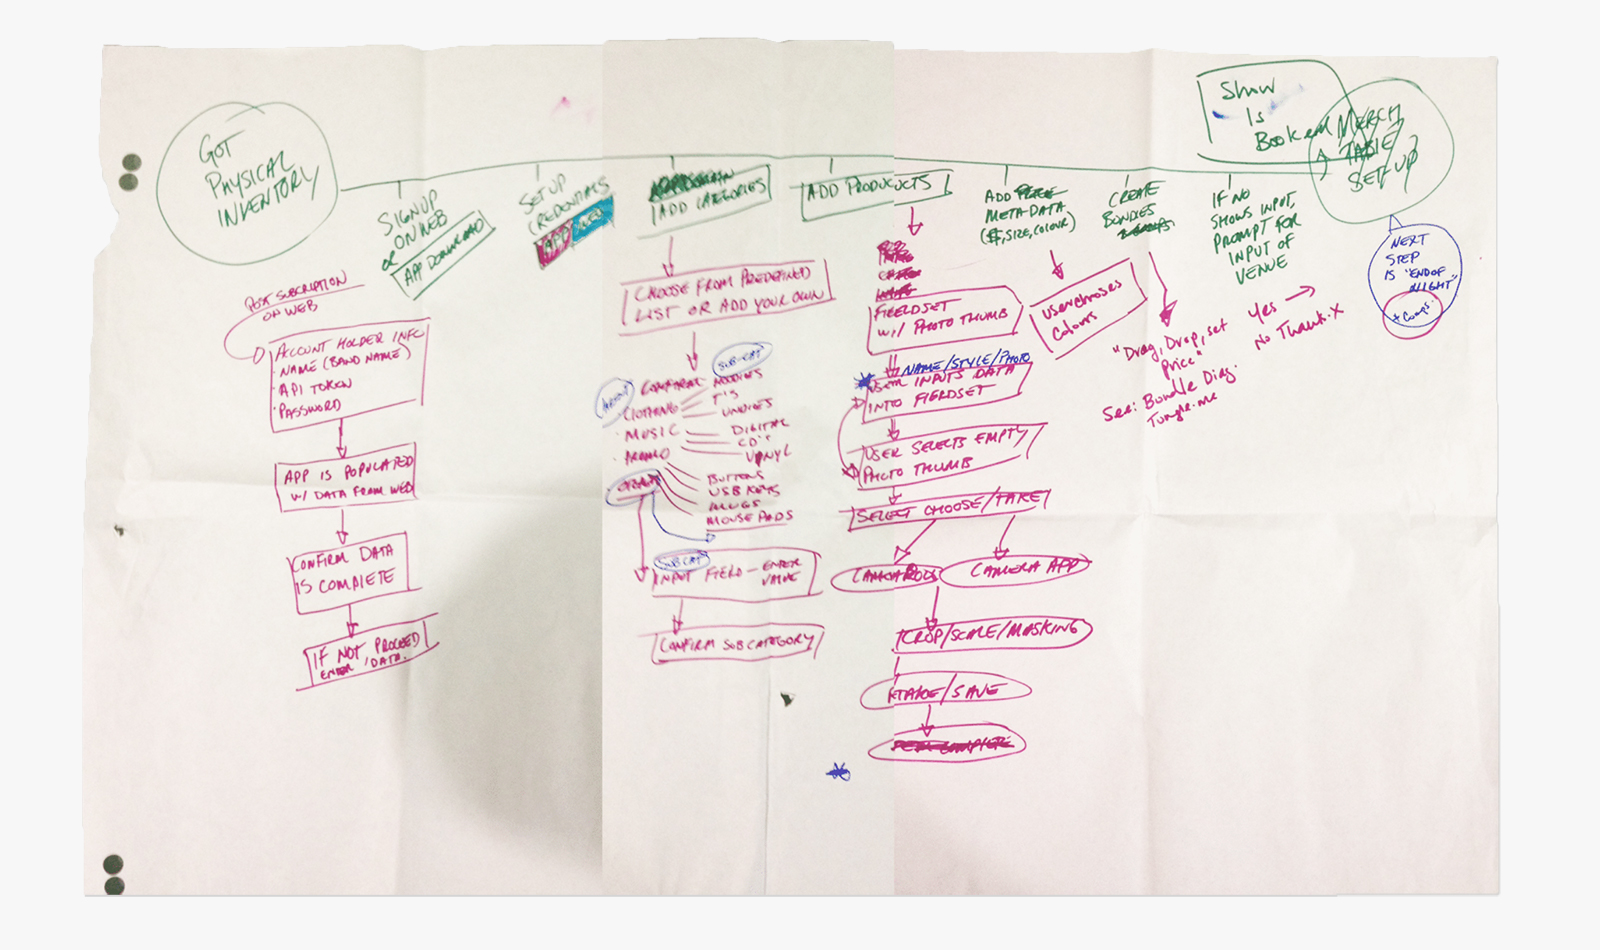 GOT
PHYSICAL
INVENTORY
SIGNUP
ON WEB
OR
APP DOWNLOAD
SET UP
CREDENTIALS
APP
ADD CATEGORIES
ADD PRODUCTS
ADD
META-DATA
($, SIZE, COLOUR)
CREATE
BUNDLES
IF NO
SHOWS INPUT,
PROMPT FOR
INPUT OF
VENUE
Show
Is
Booked
MERCH
TABLE
SET UP
NEXT
STEP
IS "END OF
NIGHT"
+ Comps
POST SUBCRIPTION
ON WEB
ACCOUNT HOLDER INFO
NAME (BAND NAME)
· API TOKEN
· PASSWORD
APP IS POPULATED
W/ DATA FROM WEB
CONFIRM DATA
IS COMPLETE
IF NOT PROCEED
ENTER DATA.
CHOOSE FROM PREDEFINED
LIST OR ADD YOUR OWN
SUB-CAT
HOODIES
CLOTHING
T'S
UNDIES
· MUSIC
DIGITAL
CD'S
VINYL
· PROMO
BUTTONS
USB KEYS
MUGS
MOUSE PADS
SUBCAT
INPUT FIELD – ENTER
VALUE
CONFIRM SUBCATEGORY
FIELDSET
W/ PHOTO THUMB
NAME/STYLE/PHOTO
USER INPUTS DATA
INTO FIELDSET
USER SELECTS EMPTY
PHOTO THUMB
SELECT CHOOSE/TAKE
CAMERA APP
CROP/SCALE/MASKING
/SAVE
User chooses
Colours
"Drag, Drop, set
Price"
See: Bundle Diag.
Yes →
No Thank.x